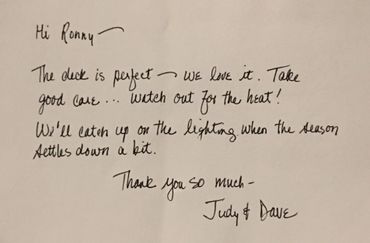 Hi Ronny –
The deck is perfect – we love it. Take
good care... watch out for the heat!
We'll catch up on the lighting when the season
settles down a bit.
Thank you so much –
Judy & Dave